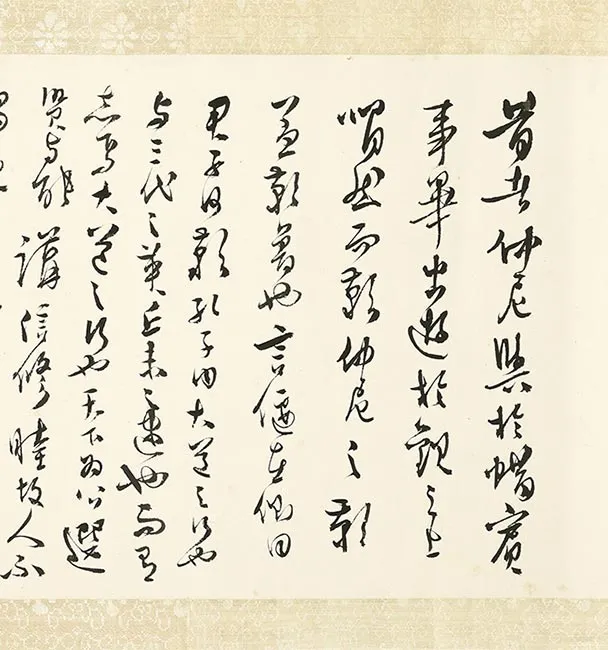 昔者仲尼與於蜡賓
事畢出遊於觀之上
喟然而歎仲尼之歎
蓋歎魯也言偃在側曰
君子何歎孔子曰大道之行也
與三代之英丘未之逮也而有
志焉大道之行也天下為公選
賢與能講信修睦故人不